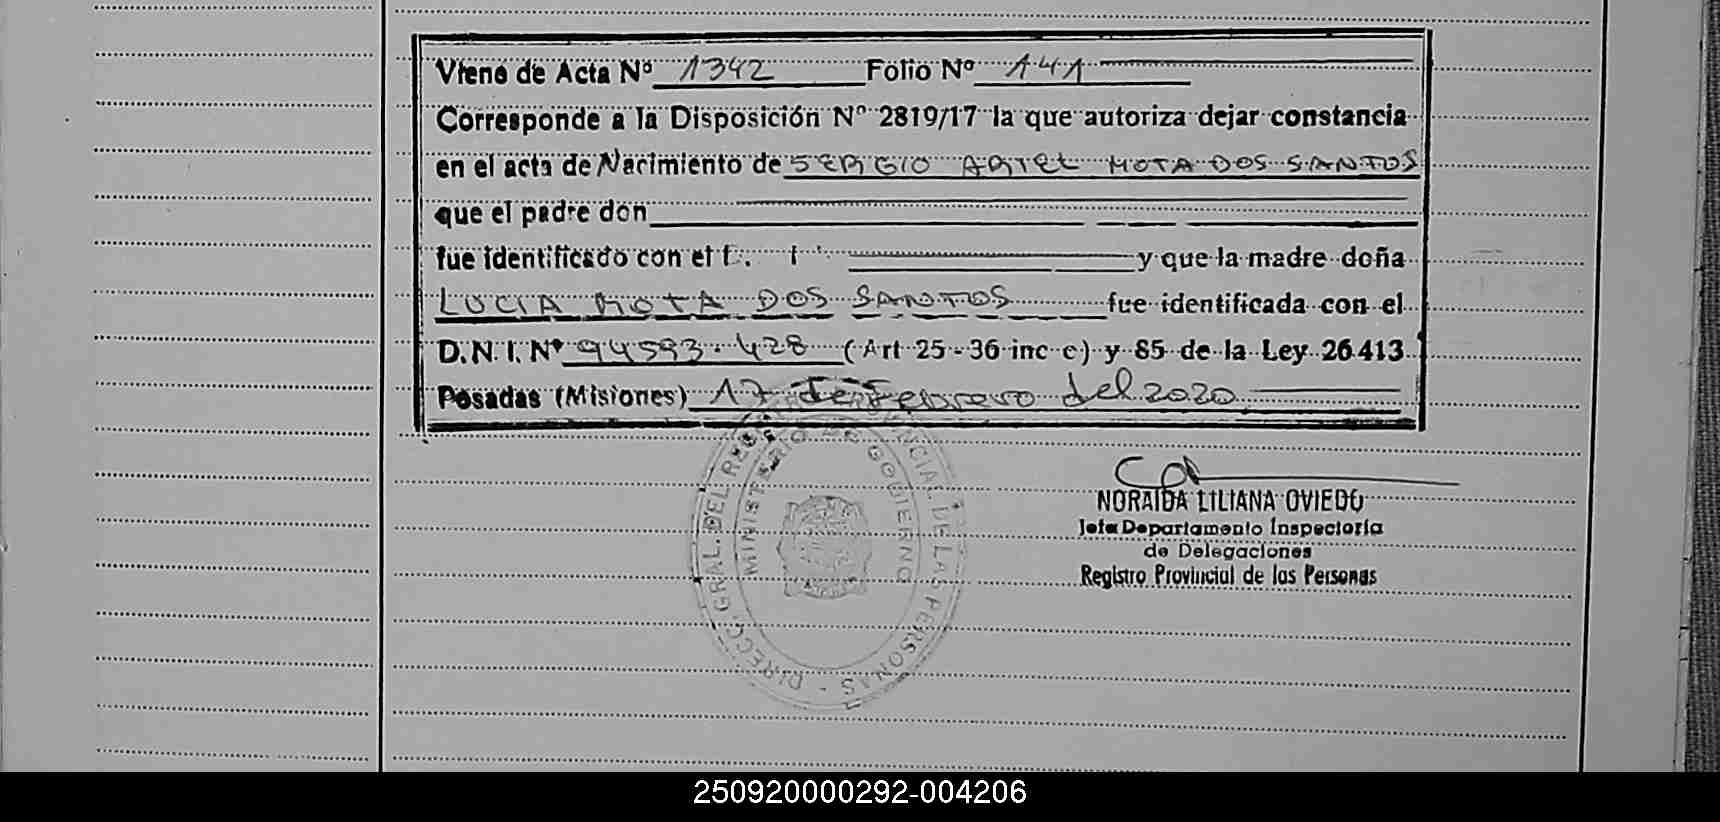 Viene de Acta Nº 1342 Folio Nº 141
Corresponde a la Disposición Nº 2819/17 la que autoriza dejar constancia
en el acta de Nacimiento de SERGIO ARIEL MOTA DOS SANTOS
que el padre don
fue identificado con el y que la madre doña
LUCIA MOTA DOS SANTOS fue identificada con el
D.N.I. Nº 94593.428 (Art 25-36 inc c) y 85 de la Ley 26.413
Posadas (Misiones) 17 de Febrero del 2020
DIRECC. GRAL. DEL REG. PROVINCIAL DE LAS PERSONAS
MINISTERIO DE GOBIERNO
NORAIDA LILIANA OVIEDO
Jefa Departamento Inspectoría
de Delegaciones
Registro Provincial de las Personas
250920000292-004206